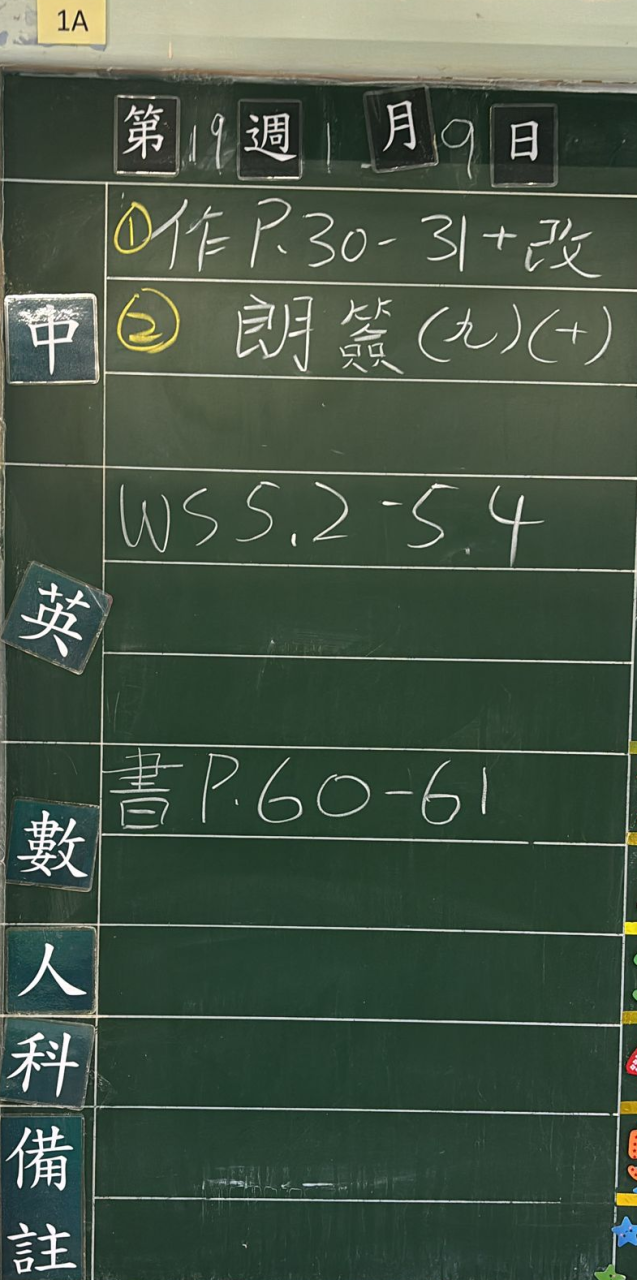 1A
第19週1月9日
中
①作P.30-31+改
② 朗簽(九)(十)
英
WS5.2-5.4
數
書P.60-61
人
科
備註